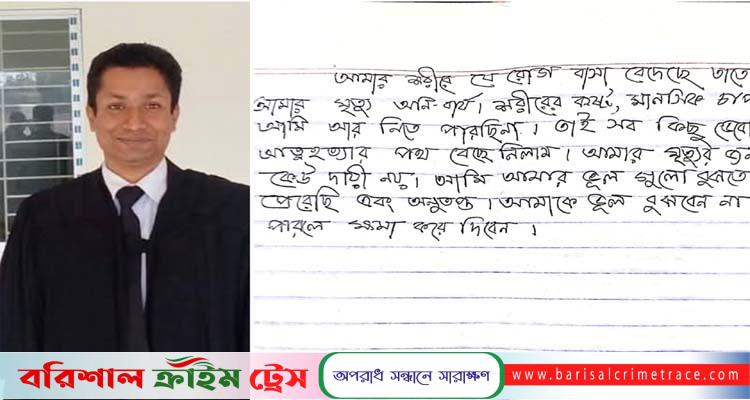 আমার শরীরে যে রোগ বাসা বেদেছে তাতে
আমার মৃত্যু অনি-বার্য। শরীরের কষ্ট, মানসিক চাপ
আমি আর নিতে পারছিনা। তাই সব কিছু ভেবে
আত্নহত্যার পথ বেছে নিলাম। আমার মৃত্যুর জন্য
কেউ দায়ী নয়। আমি আমার ভূল গুলো বুঝতে
পেরেছি এবং অনুতপ্ত। আমাকে ভূল বুঝবেন না
পারলে ক্ষমা করে দিবেন।
বরিশাল ক্রাইম ট্রেস
অপরাধ সন্ধানে সারাক্ষণ
www.barisalcrimetrace.com